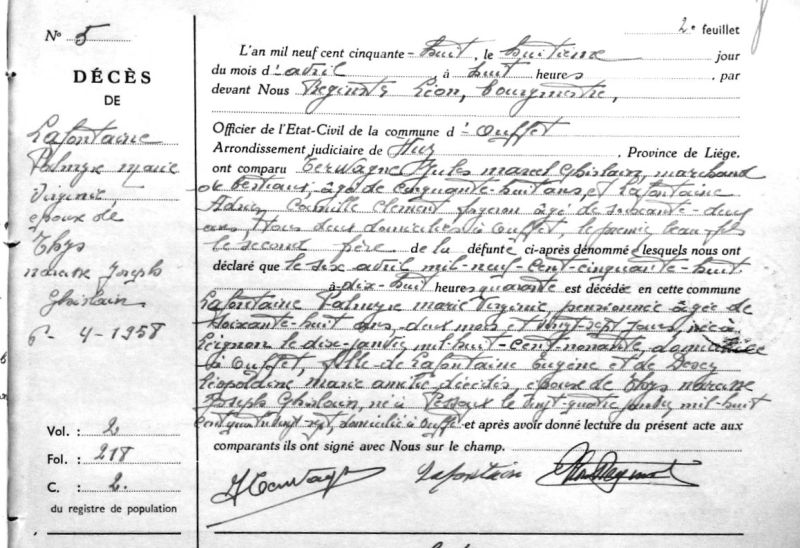 2e feuillet
No 5
DÉCÈS
DE
Lafontaine
Palmyre Marie
Virginie,
épouse de
Thys
Narcisse Joseph
Ghislain
6 - 4 - 1958
Vol. : 2
Fol. : 218
C. : 2.
du registre de population
L'an mil neuf cent cinquante-huit, le huitième jour
du mois d'avril, à huit heures, par
devant Nous Léon, bourgmestre,
Officier de l'Etat-Civil de la commune d'Ouffet
Arrondissement judiciaire de Huy, Province de Liége.
ont comparu Terwagne Jules Marcel Ghislain, marchand
de bestiaux, âgé de cinquante-huit ans, et Lafontaine
Camille Clément âgé de soixante-deux
ans, tous deux domiciliés à Ouffet, le premier beau-fils
le second frère de la défunte ci-après dénommé lesquels nous ont
déclaré que le six avril mil-neuf-cent-cinquante-huit
à dix-huit heures quarante est décédée en cette commune
Lafontaine Palmyre Marie Virginie, pensionnée âgée de
soixante-huit ans, deux mois et vingt-sept jours, née à
Leignon le dix janvier mil-huit-cent-nonante, domiciliée
à Ouffet, fille de Lafontaine Eugène et de
Léopoldine Marie Amélie, décédés, épouse de Thys Narcisse
Joseph Ghislain, né à Pessoux le vingt-quatre mil-huit
cent quatre vingt sept, domicilié à Ouffet et après avoir donné lecture du présent acte aux
comparants ils ont signé avec Nous sur le champ.
JTerwagne Lafontaine